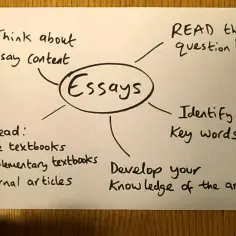 Think about
say content
READ th
question
Essays
Identify
Key words
ead:
e textbooks
plementary textbooks
rnal articles
Develop your
Knowledge of the ar